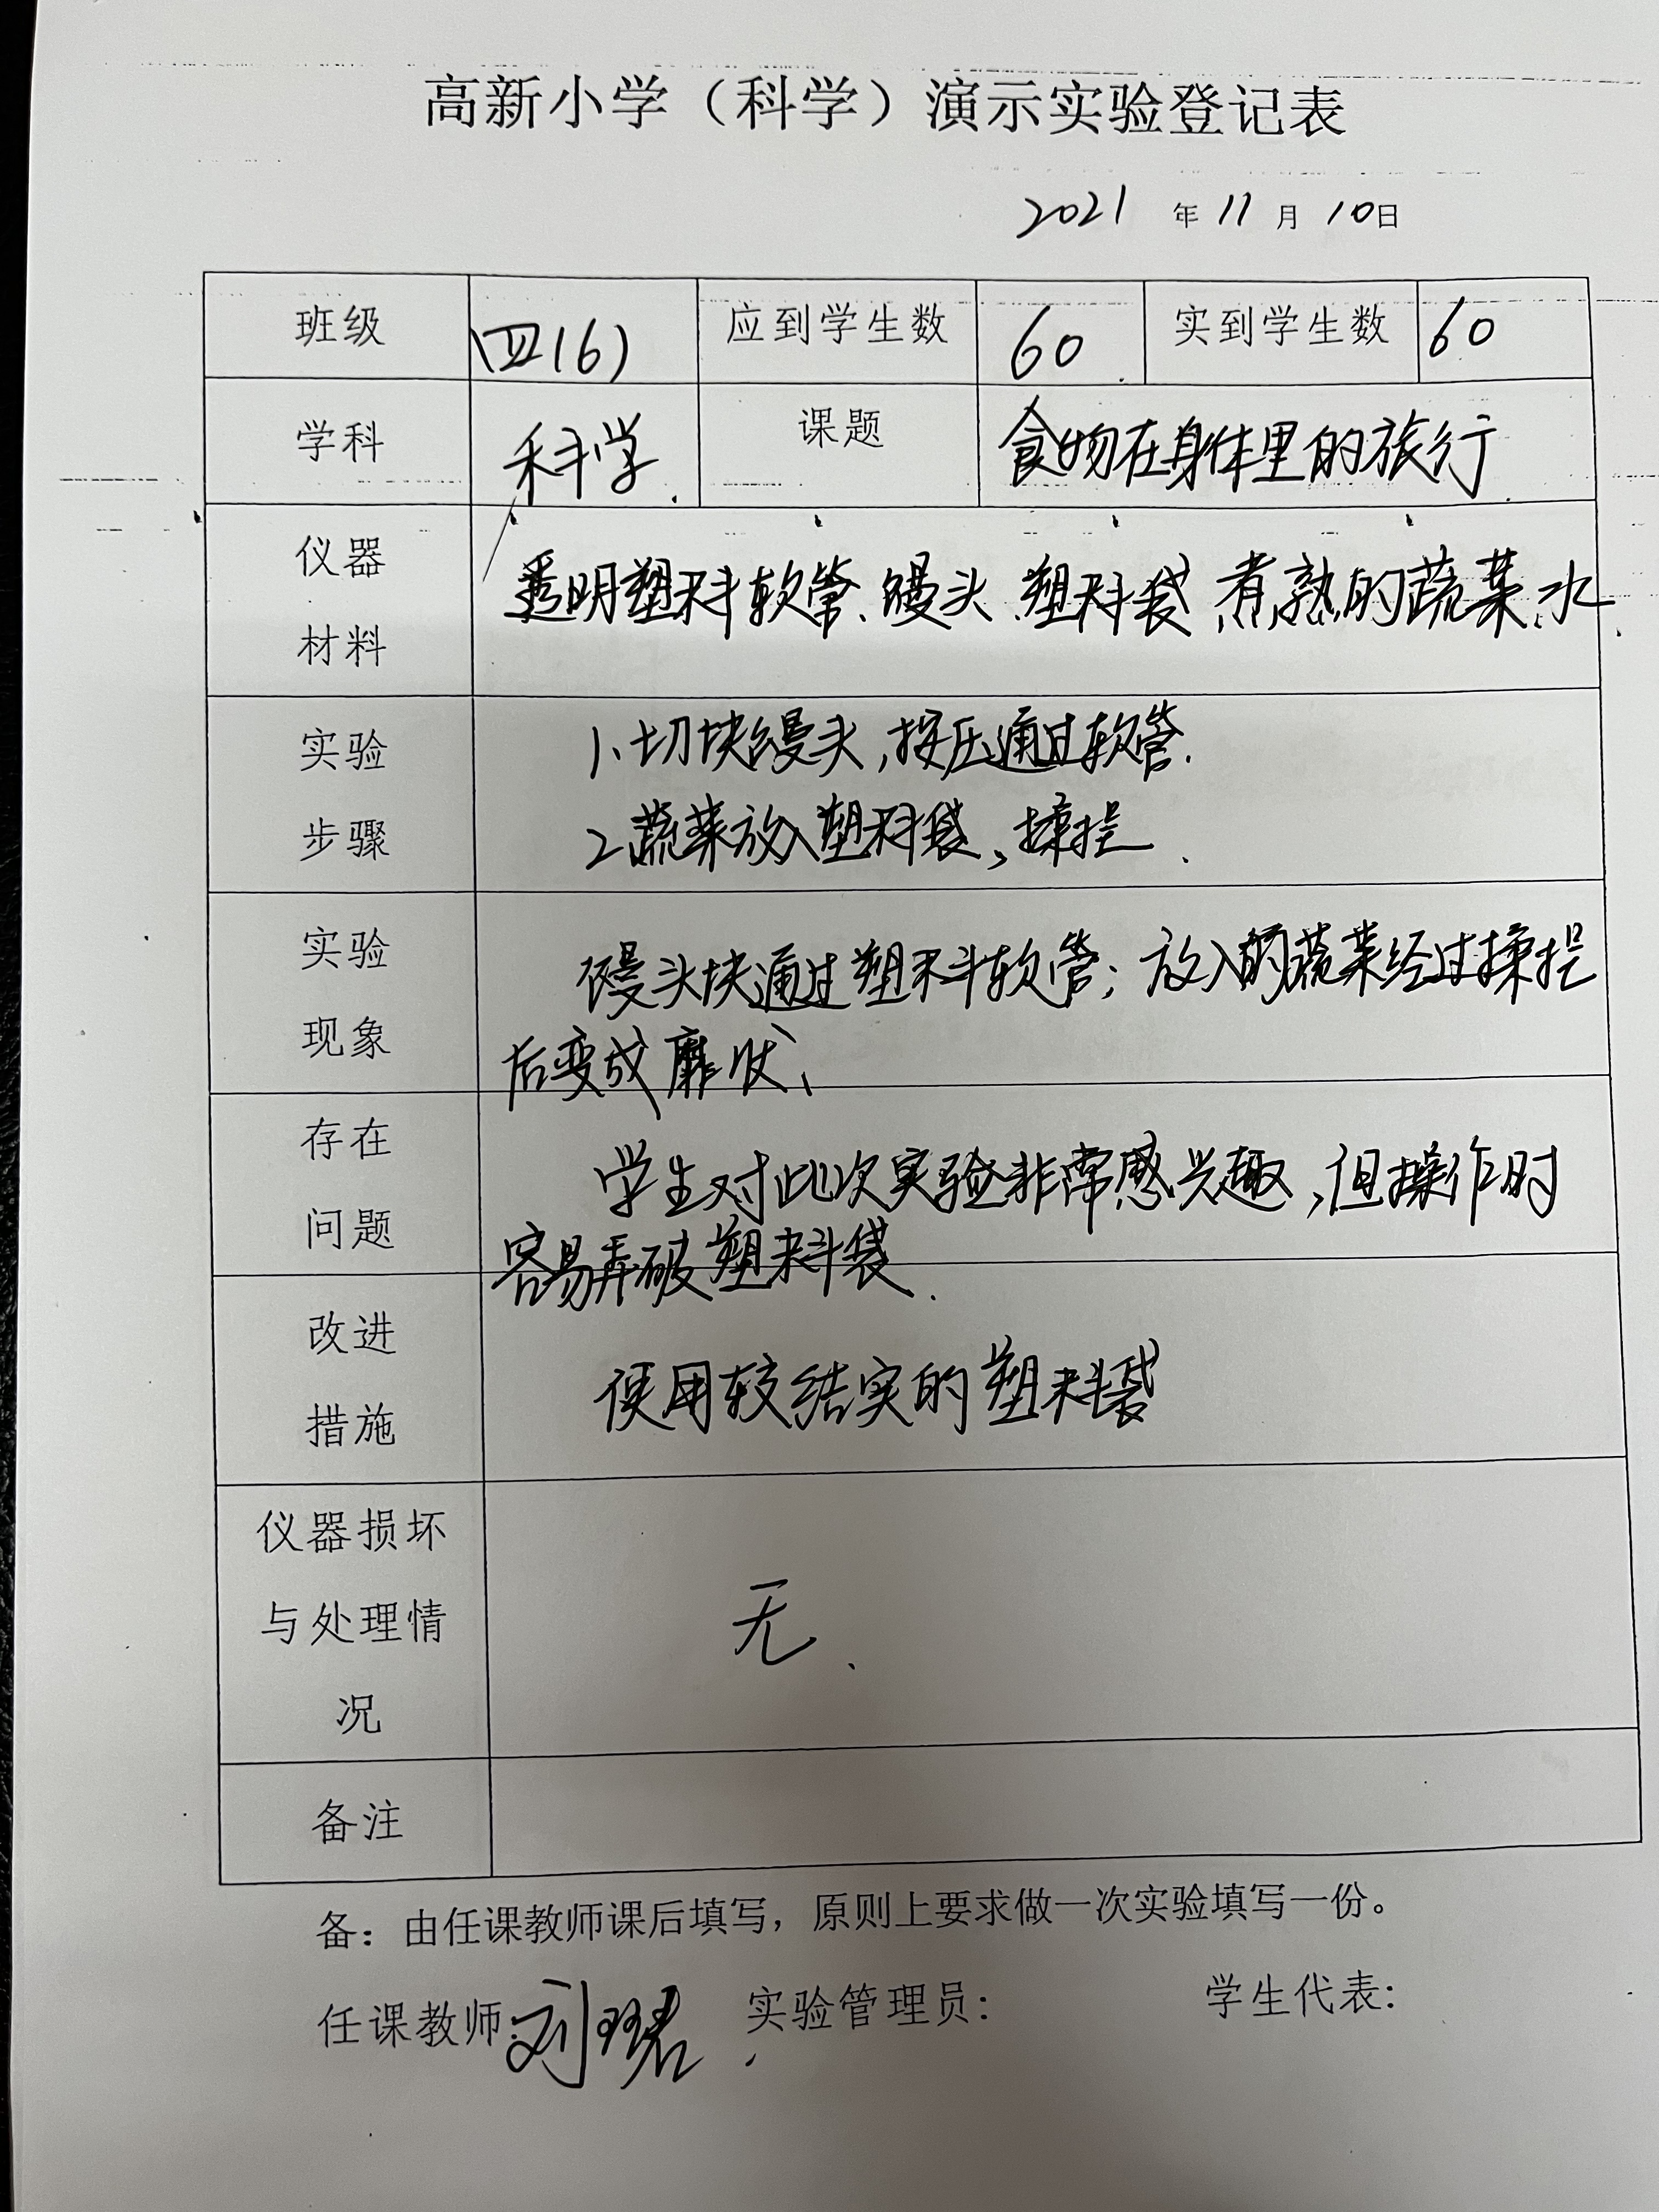 高新小学（科学）演示实验登记表
2021 年 11 月 10日
班级 四(6) 应到学生数 60 实到学生数 60
学科 科学 课题 食物在身体里的旅行
仪器
材料
透明塑料软管、馒头、塑料袋、煮熟的蔬菜、水
实验
步骤
1、切块馒头，按压通过软管.
2、蔬菜放入塑料袋，揉捏.
实验
现象
馒头块通过塑料软管；放入的蔬菜经过揉捏
后变成靡状、
存在
问题
学生对此次实验非常感兴趣，但操作时
容易弄破塑料袋.
改进
措施
使用较结实的塑料袋
仪器损坏
与处理情
况
无.
备注
备：由任课教师课后填写，原则上要求做一次实验填写一份。
任课教师：刘珺 实验管理员： 学生代表：